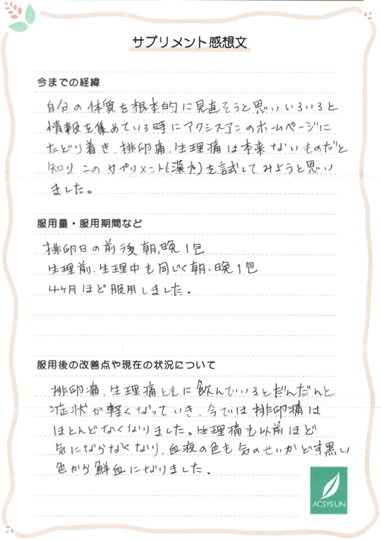 サプリメント感想文
今までの経緯
自分の体質を根本的に見直そうと思いいろいろと
情報を集めている時にアクシスアンのホームページに
たどり着き、排卵痛、生理痛は本来ないものだと
知り このサプリメント(漢方)を試してみようと思い
ました。
服用量・服用期間など
排卵日の前後 朝、晩1包
生理前、生理中も同じく朝、晩1包
4ヶ月ほど服用しました。
服用後の改善点や現在の状況について
排卵痛、生理痛ともに飲んでいるとだんだんと
症状が軽くなっていき、今では排卵痛は
ほとんどなくなりました。生理痛も以前ほど
気にならなくなり、血液の色も気のせいかどす黒い
色から鮮血になりました。
ACSYS UN